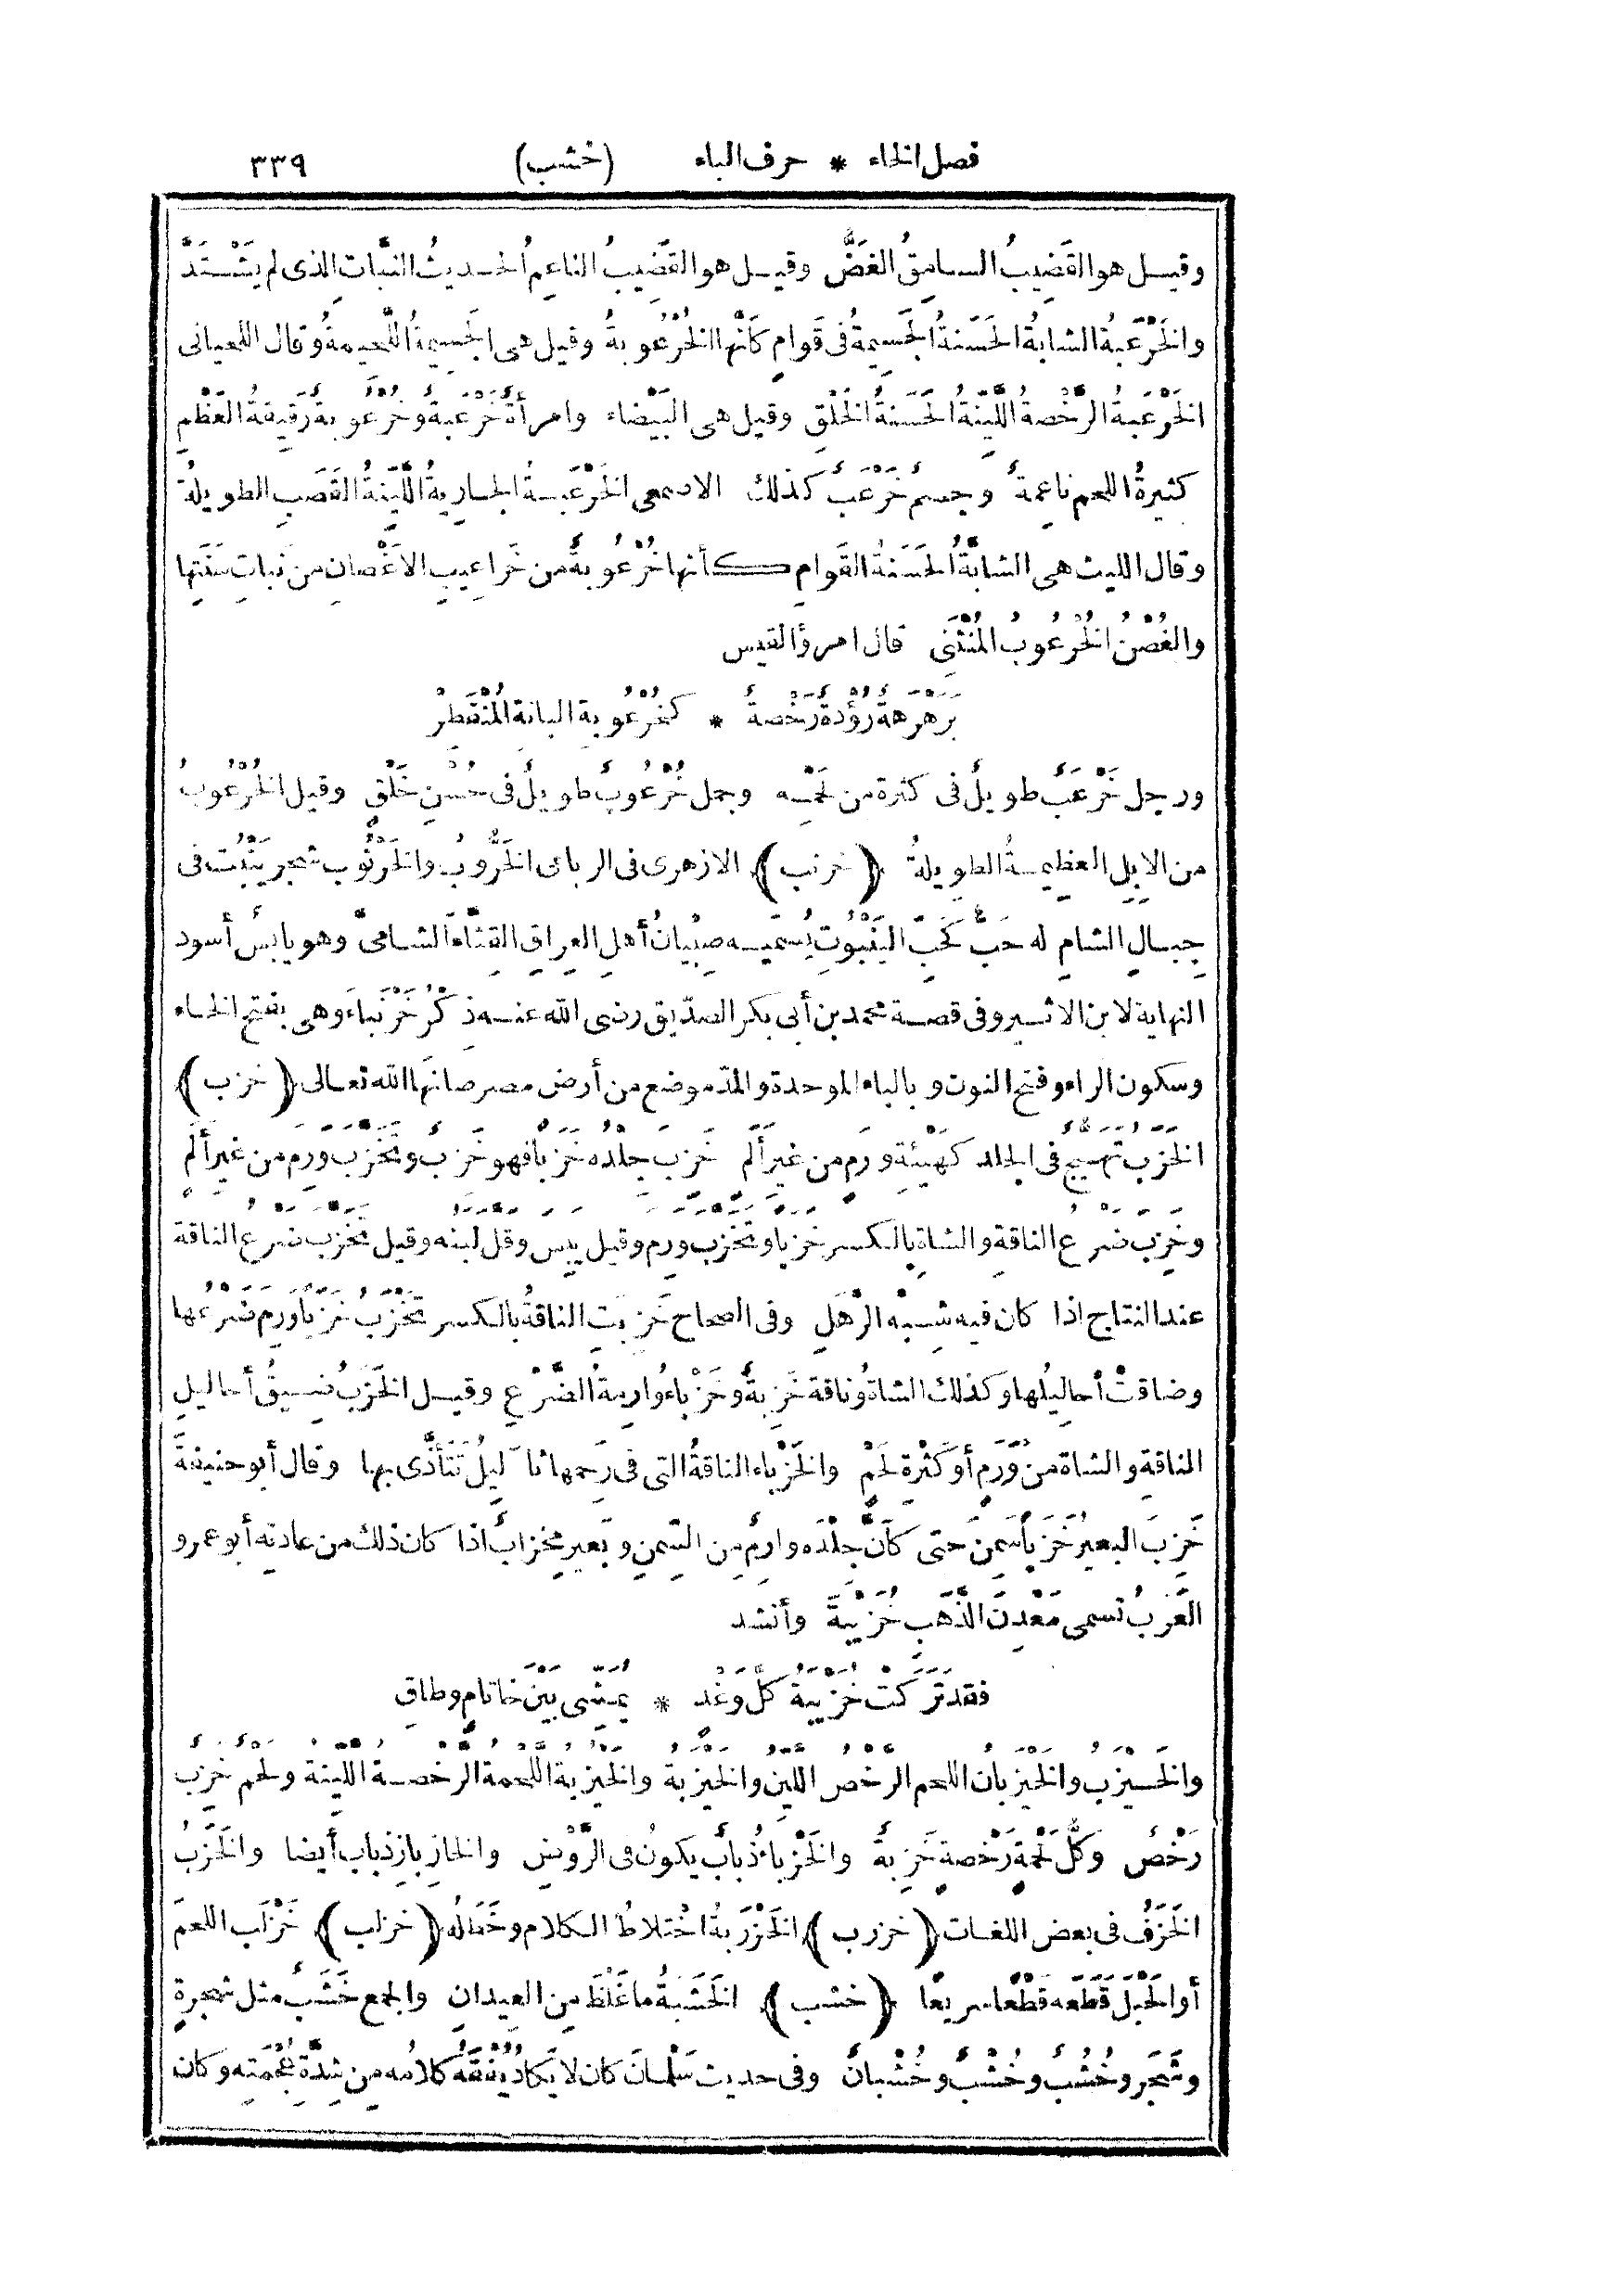 فصل الخاء * حرف الباء (خشب) ٣٣٩
وقيل هو القَضِيبُ السامِقُ الغَضُّ وقيل هو القَضِيبُ الناعِمُ الحديثُ النَّباتِ الذى لم يَشْتَدَّ
والخَرْعَبةُ الشابةُ الحَسَنةُ الجَسِيمةُ فى قَوامٍ كأَنَّها الخُرْعُوبةُ وقيل هى الجَسِيمةُ اللَّحِيمةُ وقال اللحيانى
الخَرْعَبةُ الرَّخْصةُ اللَّيِّنةُ الحَسَنةُ الخَلْقِ وقيل هى البَيْضاء وامرأَةٌ خَرْعَبةٌ وخُرْعُوبةٌ رَقِيقةُ العَظْمِ
كثيرةُ اللحم ناعِمةٌ وجسمٌ خَرْعَبٌ كذلك الاصمعى الخَرْعَبةُ الجاريةُ اللَّيِّنةُ القَصَبِ الطويلةُ
وقال الليث هى الشابَّةُ الحَسَنةُ القَوامِ كأنها خُرْعُوبةٌ من خَراعِيبِ الاَغْصانِ من نَباتِ سَنَتِها
والغُصْنُ الخُرْعُوبُ المُنْثَنِى قال امرؤ القيس
بَرَهْرَهةٌ رُؤْدةٌ رَخْصةٌ * كخُرْعُوبة البانة المُنْفَطِرْ
ورجل خَرْعَبٌ طويلٌ فى كثرة من لَحْمِه وجمل خُرْعُوبٌ طويلٌ فى حُسْنِ خَلْقٍ وقيل الخُرْعُوبُ
من الابِلِ العظِيمةُ الطويلةُ (خرنب) الازهرى فى الرباعى الخَرُّوبُ والخَرْنُوب شجر يَنْبُت فى
جِبالِ الشامِ له حَبٌّ كَحَبِّ اليَنْبُوتِ يُسمِّيه صِبْيانُ أَهلِ العِراقِ القِثَّاءَ الشامىَّ وهو يابسٌ أَسود
النهاية لابن الاثير وفى قصة محمد بن أبى بكر الصدّيق رضى الله عنه ذِكْرُ خَرْنَباءَ وهى بفتح الخاء
وسكون الراء وفتح النون وبالباء الموحدة والمدّ موضع من أرض مصر صانَها الله تعالى (خزب)
الخَزَبُ تَهَيُّجٌ فى الجلد كهَيْئةِ وَرَمٍ من غيرِ أَلَمٍ خَزِبَ جِلْدُه خَزَبًا فهو خَزِبٌ وتَخَزَّبَ وَرِمَ من غيرِ أَلَمٍ
وخَزِبَ ضَرْعُ الناقةِ والشاةِ بالكسر خَزَبًا وتَخَزَّبَ وَرِمَ وقيل يبس وقل لبنه وقيل تَخَزَّبَ ضَرْعُ الناقة
عند النتاج اذا كان فيه شِبْه الرَّهَلِ وفى الصحاح خَزِبَتِ الناقةُ بالكسر تَخْزَبُ خَزَبًا وَرِمَ ضَرْعُها
وضاقَتْ أَحالِيلُها وكذلك الشاةُ وناقة خَزِبةٌ وخَزْباءُ وارِمةُ الضَّرْعِ وقيل الخَزَبُ ضِيقُ أَحالِيلِ
الناقةِ والشاة من وَرَمٍ أَو كَثْرةِ لَحْمٍ والخَزْباء الناقةُ التى فى رَحِمها ثَآلِيلُ تَتَأَذَّى بها وقال أبو حنيفةَ
خَزِبَ البعيرُ خَزَبًا سَمِنَ حتى كأَنَّ جِلْدَه وارِمٌ من السِّمَنِ وبَعير مِخْزابٌ اذا كان ذلك من عادتِه أبو عمرو
العَرَبُ تسمى مَعْدِنَ الذَّهَبِ خُزَيْبةَ وأنشد
فقد تَرَكَتْ خُزَيْبةُ كلَّ وَغْدٍ * يُمَشِّى بَيْنَ خاتامٍ وطاقِ
والخَيْزَبُ والخَيْزَبانُ اللحم الرخْصُ اللَّيِّن والخَيْزَبةُ والخَيْزُبةُ اللَّحْمةُ الرَّخْصةُ اللَّيِّنة ولحم خَزِبٌ
رَخْصٌ وكلُّ لَحْمةٍ رَخْصةٍ خَزِبةٌ والخَزْباءُ ذُبابٌ يكونُ فى الرَّوْضِ والخازِبازِ ذباب أيضا والخَزَبُ
الخَزَفُ فى بعض اللغات (خزرب) الخَزْرَبةُ اخْتِلاطُ الكلام وخَطَلُه (خزلب) خَزْلَب اللحمَ
أو الحَبْلَ قَطَعه قَطْعًا سريعًا (خشب) الخَشَبةُ ما غَلُظَ مِن العِيدانِ والجمع خَشَبٌ مثل شجرةٍ
وشَجَر وخُشُبٌ وخُشْبٌ وخُشْبانٌ وفى حديث سَلْمانَ كان لا يَكادُ يُفْقَهُ كلامُه من شِدَّةِ عُجْمَتِه وكان